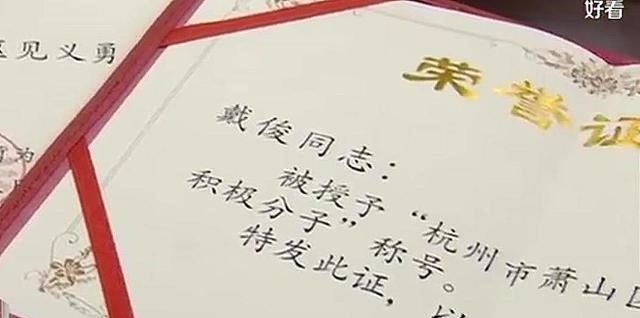 好看
区见义勇
为
荣誉证
戴俊同志：
被授予“杭州市萧山区
积极分子”称号。
特发此证，以